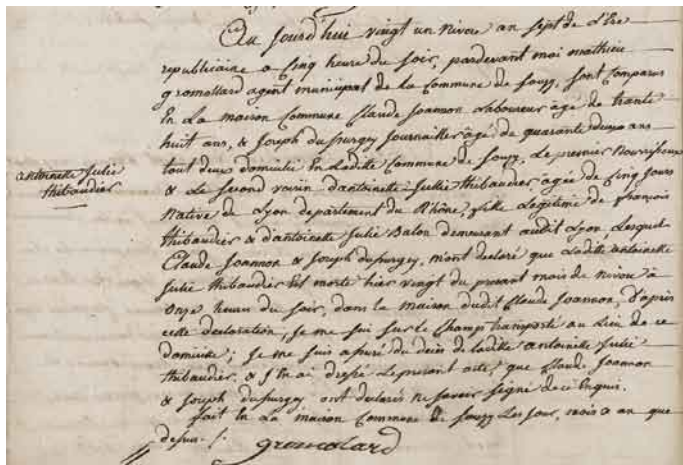 Au jourd'hui vingt un nivose an sept de l'Ere
republicaine a Cinq heure du soir, pardevant moi mathieu
gromollard agent municipal de la Commune de Souzy, sont Comparus
En La maison Commune Claude Joannon Laboureur âgé de trante
huit ans, & Joseph dupurgey Journaillier âgé de quarante deux ans
tout deux domicilié En Laditte Commune de Souzy, Le premier Nourrisseux
antoinette Julie
thibaudier
& Le Second voisin d'antoinette Jullie thibaudier agée de Cinq Jours
Native de Lyon departement du Rhône, fille Legitime de françois
thibaudier & d'antoinette Julie Balon demeurant audit Lyon Lesquel
Claude Joannon & Joseph dupurgey, m'ont declaré que Laditte antoinette
Julie thibaudier Est morte hier vingt du presant mois de nivose à
Onze heures du Soir, dans la maison dudit Claude Joannon, D'après
cette declaration, Je me sui sur le Champ transporté au Lieu de ce
domicile; Je me suis assuré du décès de laditte antoinette Julie
thibaudier, & J'En ai dressé Le presant acte, que Claude Joannon
& Joseph dupurgey ont declarés ne Savoir Signé de ce Enquis.
fait En La maison Commune de Souzy Les Jour, mois & an que
desus ./.
gromolard